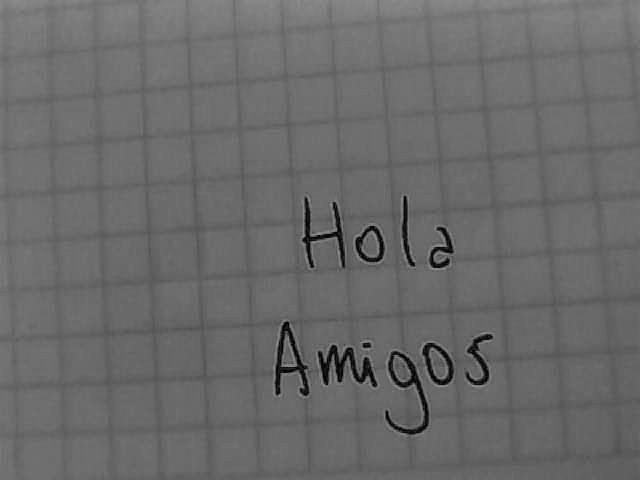 Hola
Amigos